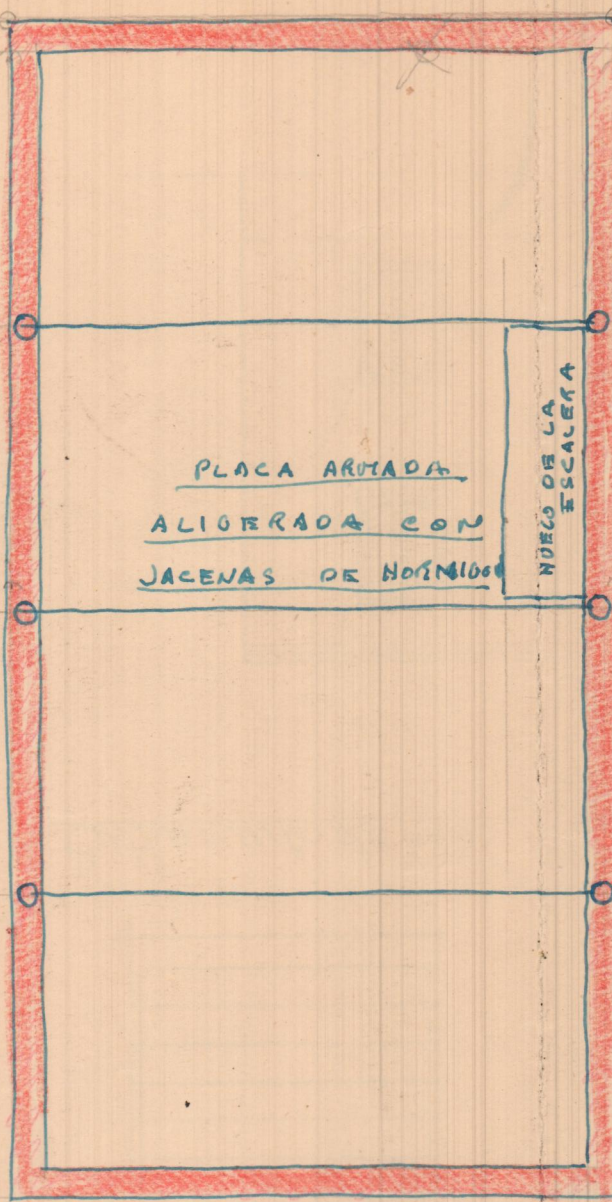 PLACA ARMADA
ALIGERADA CON
JACENAS DE HORMIGON
HUECO DE LA
ESCALERA